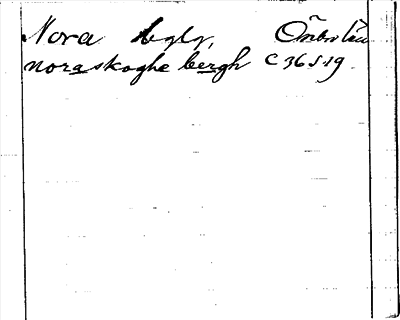 Nora bglg, Örebro län
noraskoghe bergh C 36 s. 19